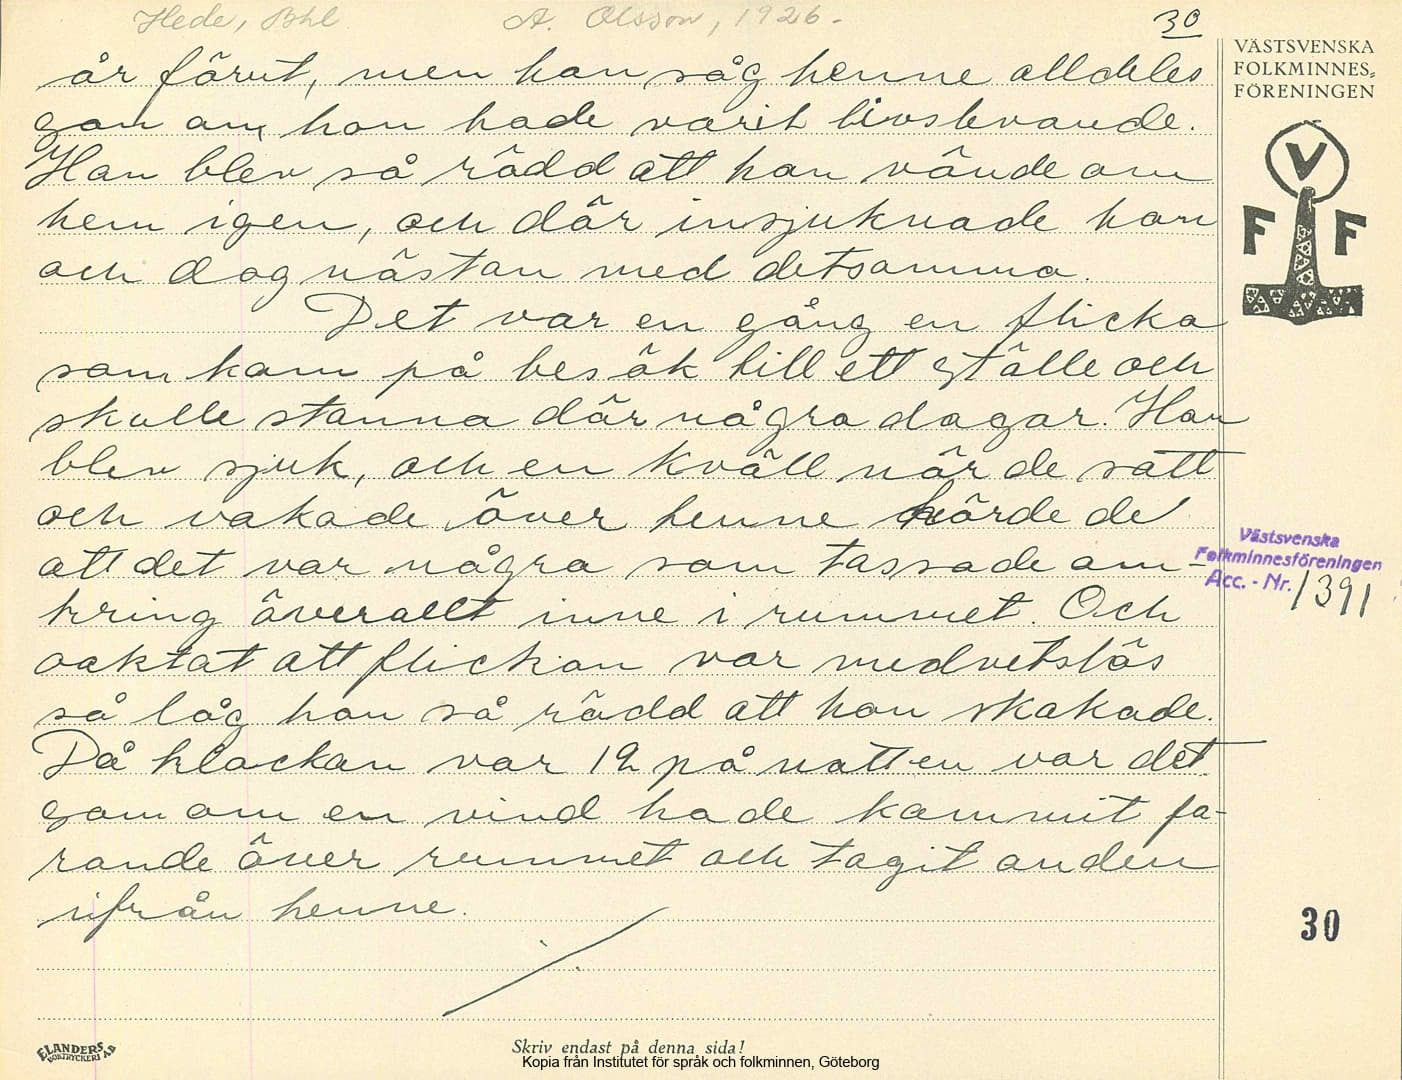 Hede, Bhl A. Olsson, 1926.- 30
år förut, men han såg henne alldeles
som om hon hade varit livslevande.
Han blev så rädd att han vände om
hem igen, och där insjuknade han
och dog nästan med detsamma.
Det var en gång en flicka
som kom på besök till ett ställe och
skulle stanna där några dagar. Hon
blev sjuk, och en kväll när de satt
och vakade över henne hörde de
att det var några som tassade om-
kring överallt inne i rummet. Och
oaktat att flickan var medvetslös
så låg hon så rädd att hon skakade.
Då klockan var 12 på natten var det
som om en vind hade kommit fa-
rande över rummet och tagit anden
ifrån henne.
VÄSTSVENSKA
FOLKMINNES-
FÖRENINGEN
V
F F
Västsvenska
Folkminnesföreningen
Acc. - Nr. 1391
30
ELANDERS
BOKTRYCKERI A.B
Skriv endast på denna sida!
Kopia från Institutet för språk och folkminnen, Göteborg